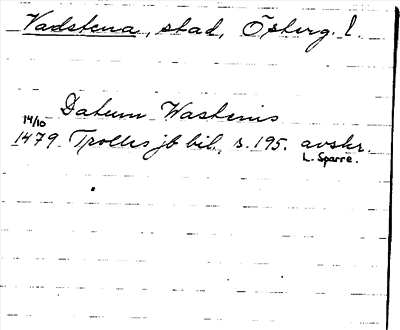 Vadstena, stad, Österg. l.
Datum Wastenis
14/10
1479. Trolles jb bil, s. 195. avskr.
L. Sparre.